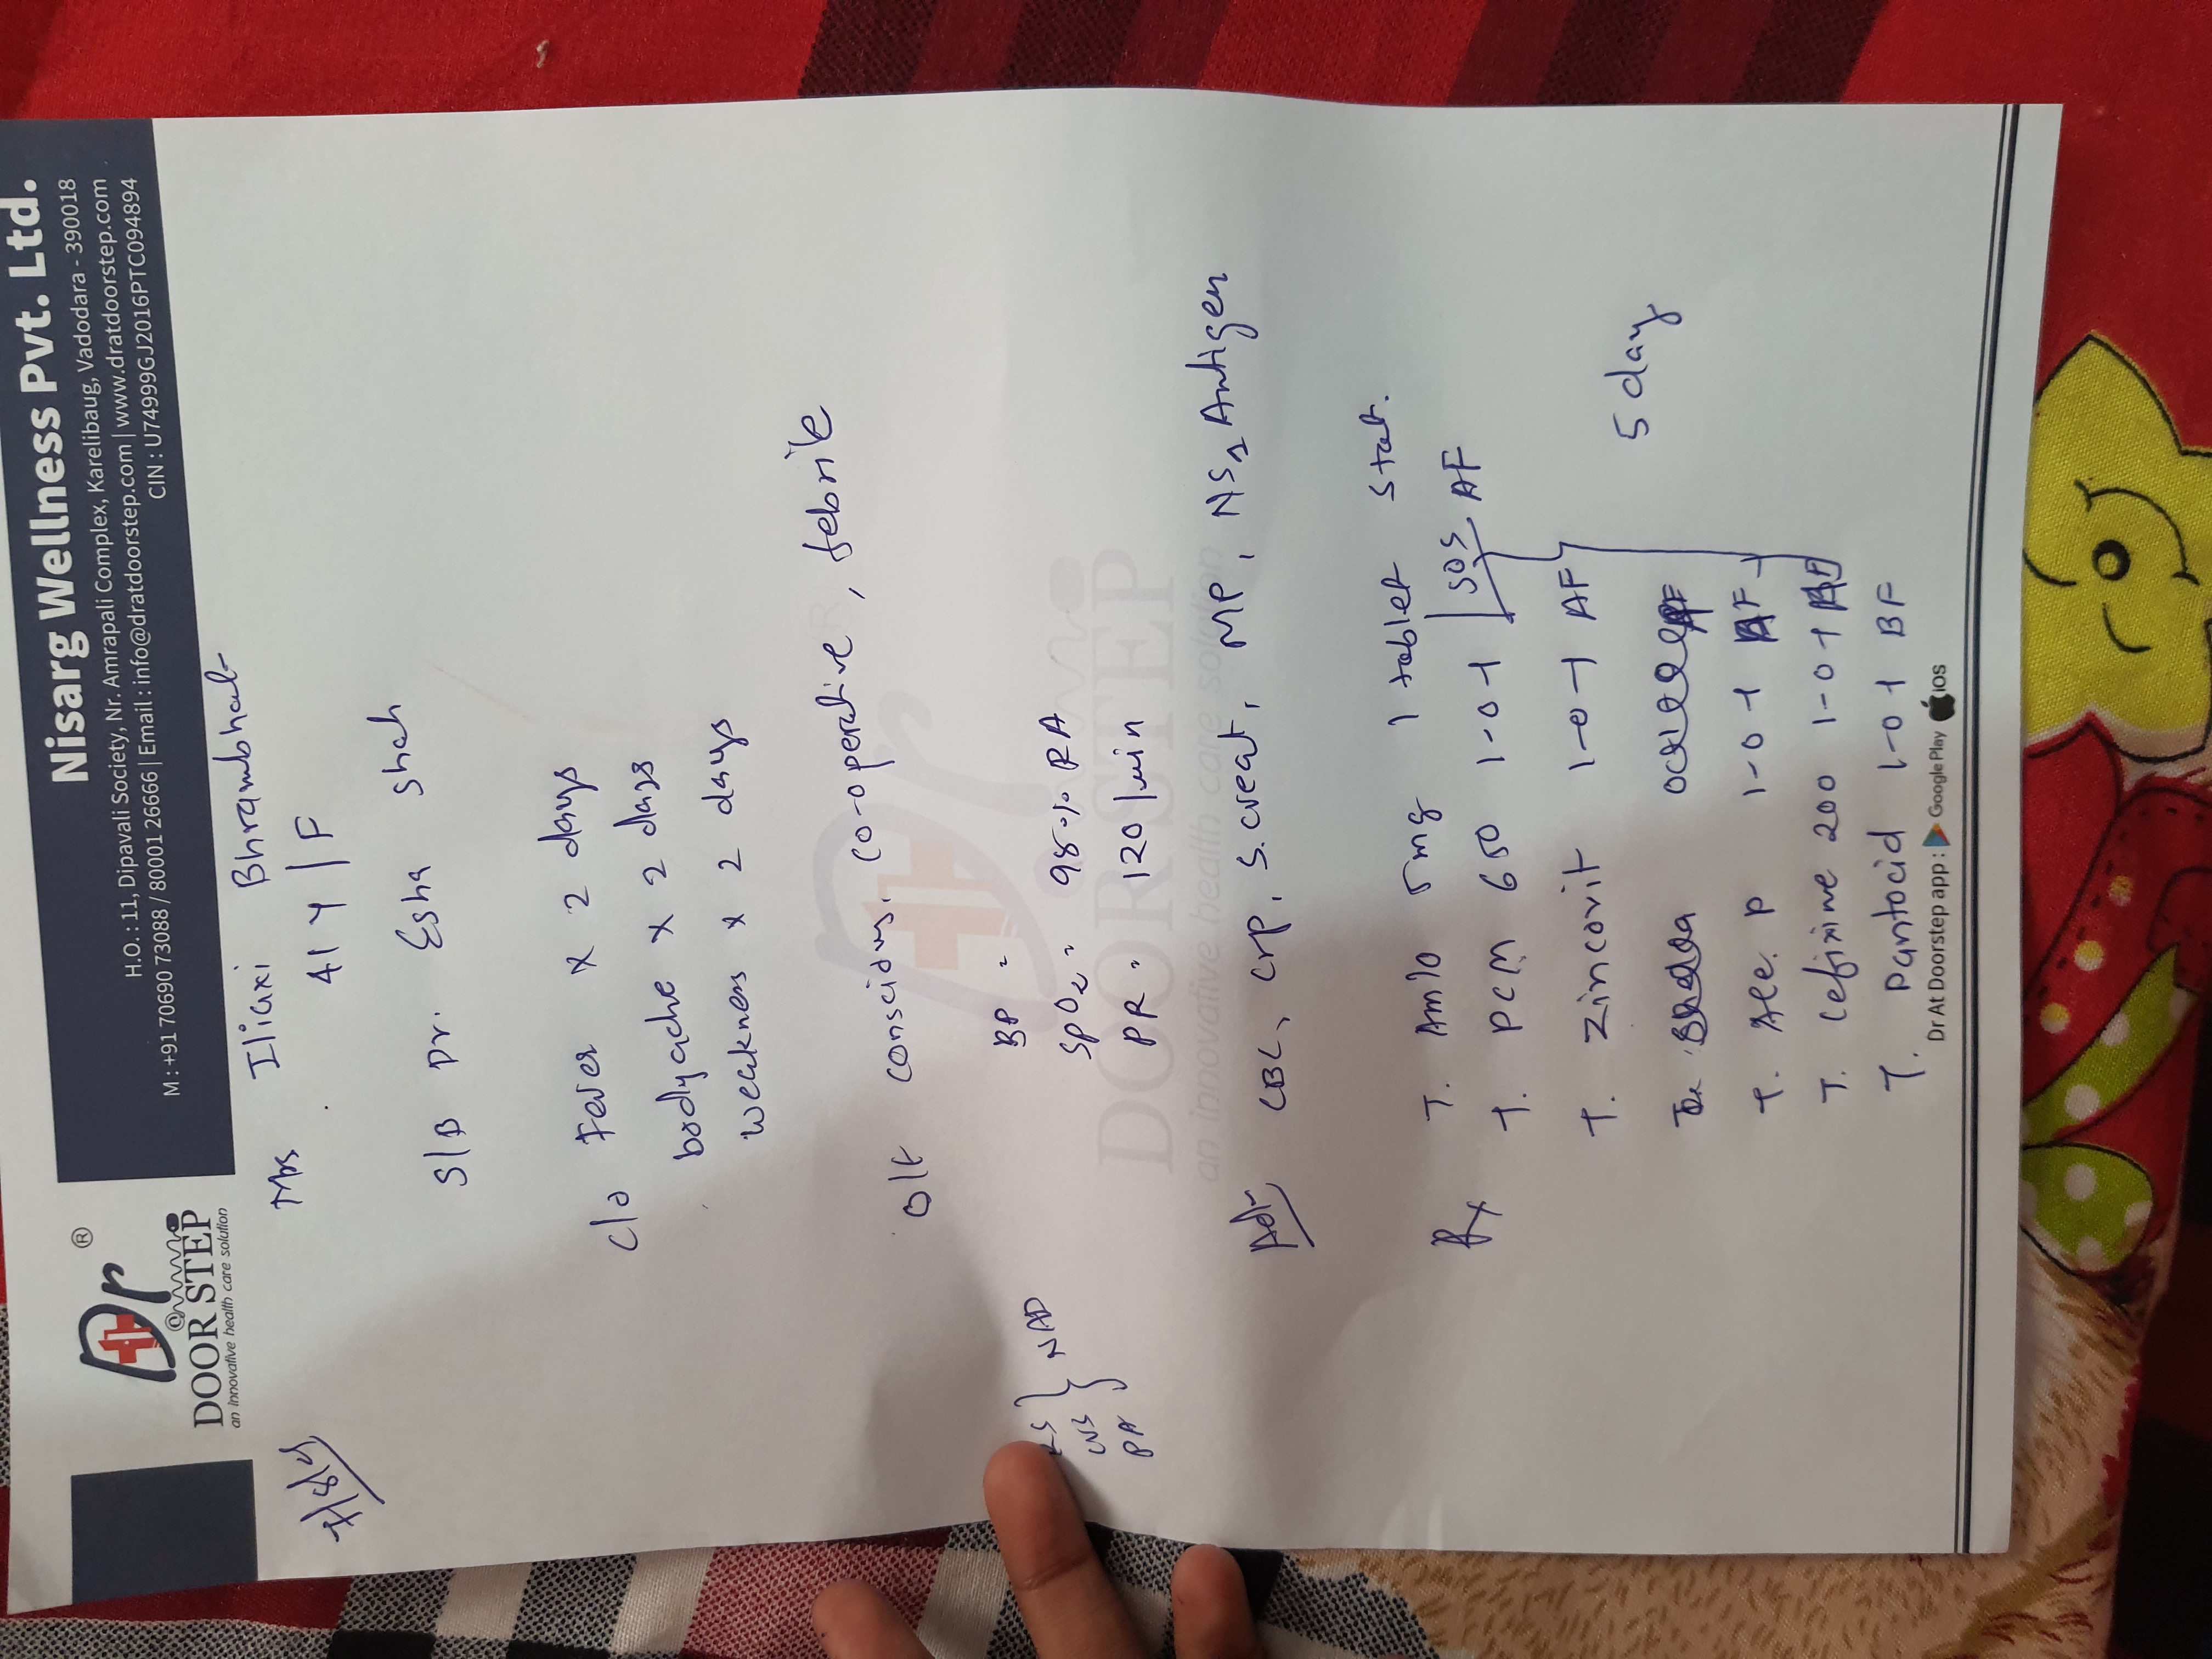 Dr ®
@
DOOR STEP
an innovative health care solution
Nisarg Wellness Pvt. Ltd.
H.O. : 11, Dipavali Society, Nr. Amrapali Complex, Karelibaug, Vadodara - 390018
M : +91 70690 73088 / 80001 26666 | Email : info@dratdoorstep.com | www.dratdoorstep.com
CIN : U74999GJ2016PTC094894
Mrs Iliaxi Bhrambhat
41 Y | F
S/B Dr. Esha Shah
c/o Fever x 2 days
bodyache x 2 days
weakness x 2 days
O/E conscious, co-operative, febrile
BP =
SpO2 = 98% RA
PR = 120/min
RS
CVS } NAD
PA
Adv CBC, Crp, S.creat, MP, NS1 Antigen
Rx T. Amlo 5mg 1 tablet stat.
T. PCM 650 1-0-1 | SOS AF
T. Zincovit 1-0-1 AF
T. Ace. P 1-0-1 AF
5 day
T. Cefixime 200 1-0-1
T. Pantocid 1-0-1 BF
Dr At Doorstep app : Google Play iOS
Dr
DOOR STEP
an innovative health care solution